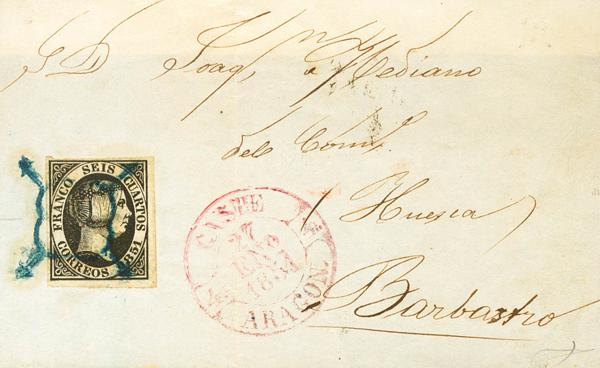 S D Joaqn Mediano
del Com.
(Huesca)
Barbastro
FRANCO SEIS CUARTOS
CORREOS 1851
CASPE
27
ENo
1851
ARAGON.